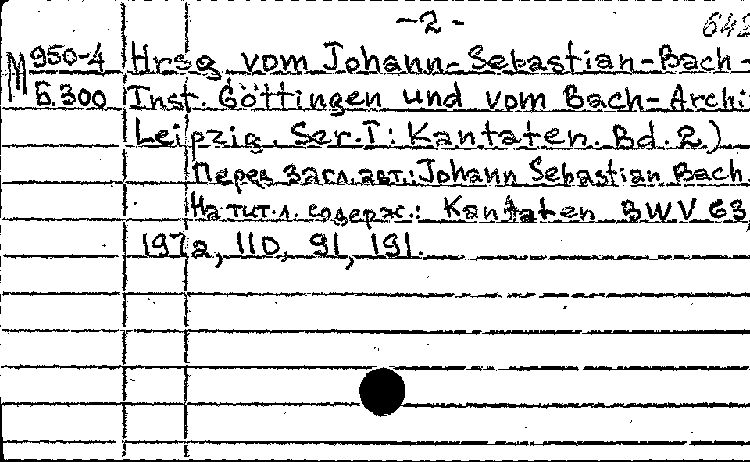 -2-
642
М 950-4 Hrsg. vom Johann-Sebastian-Bach-
Б.300 Inst. Göttingen und vom Bach-Archi
Leipzig. Ser. I: Kantaten. Bd. 2).
Перед загл. авт.: Johann Sebastian Bach.
На тит. л. содерж.: Kantaten BWV 63,
197a, 110, 91, 191.